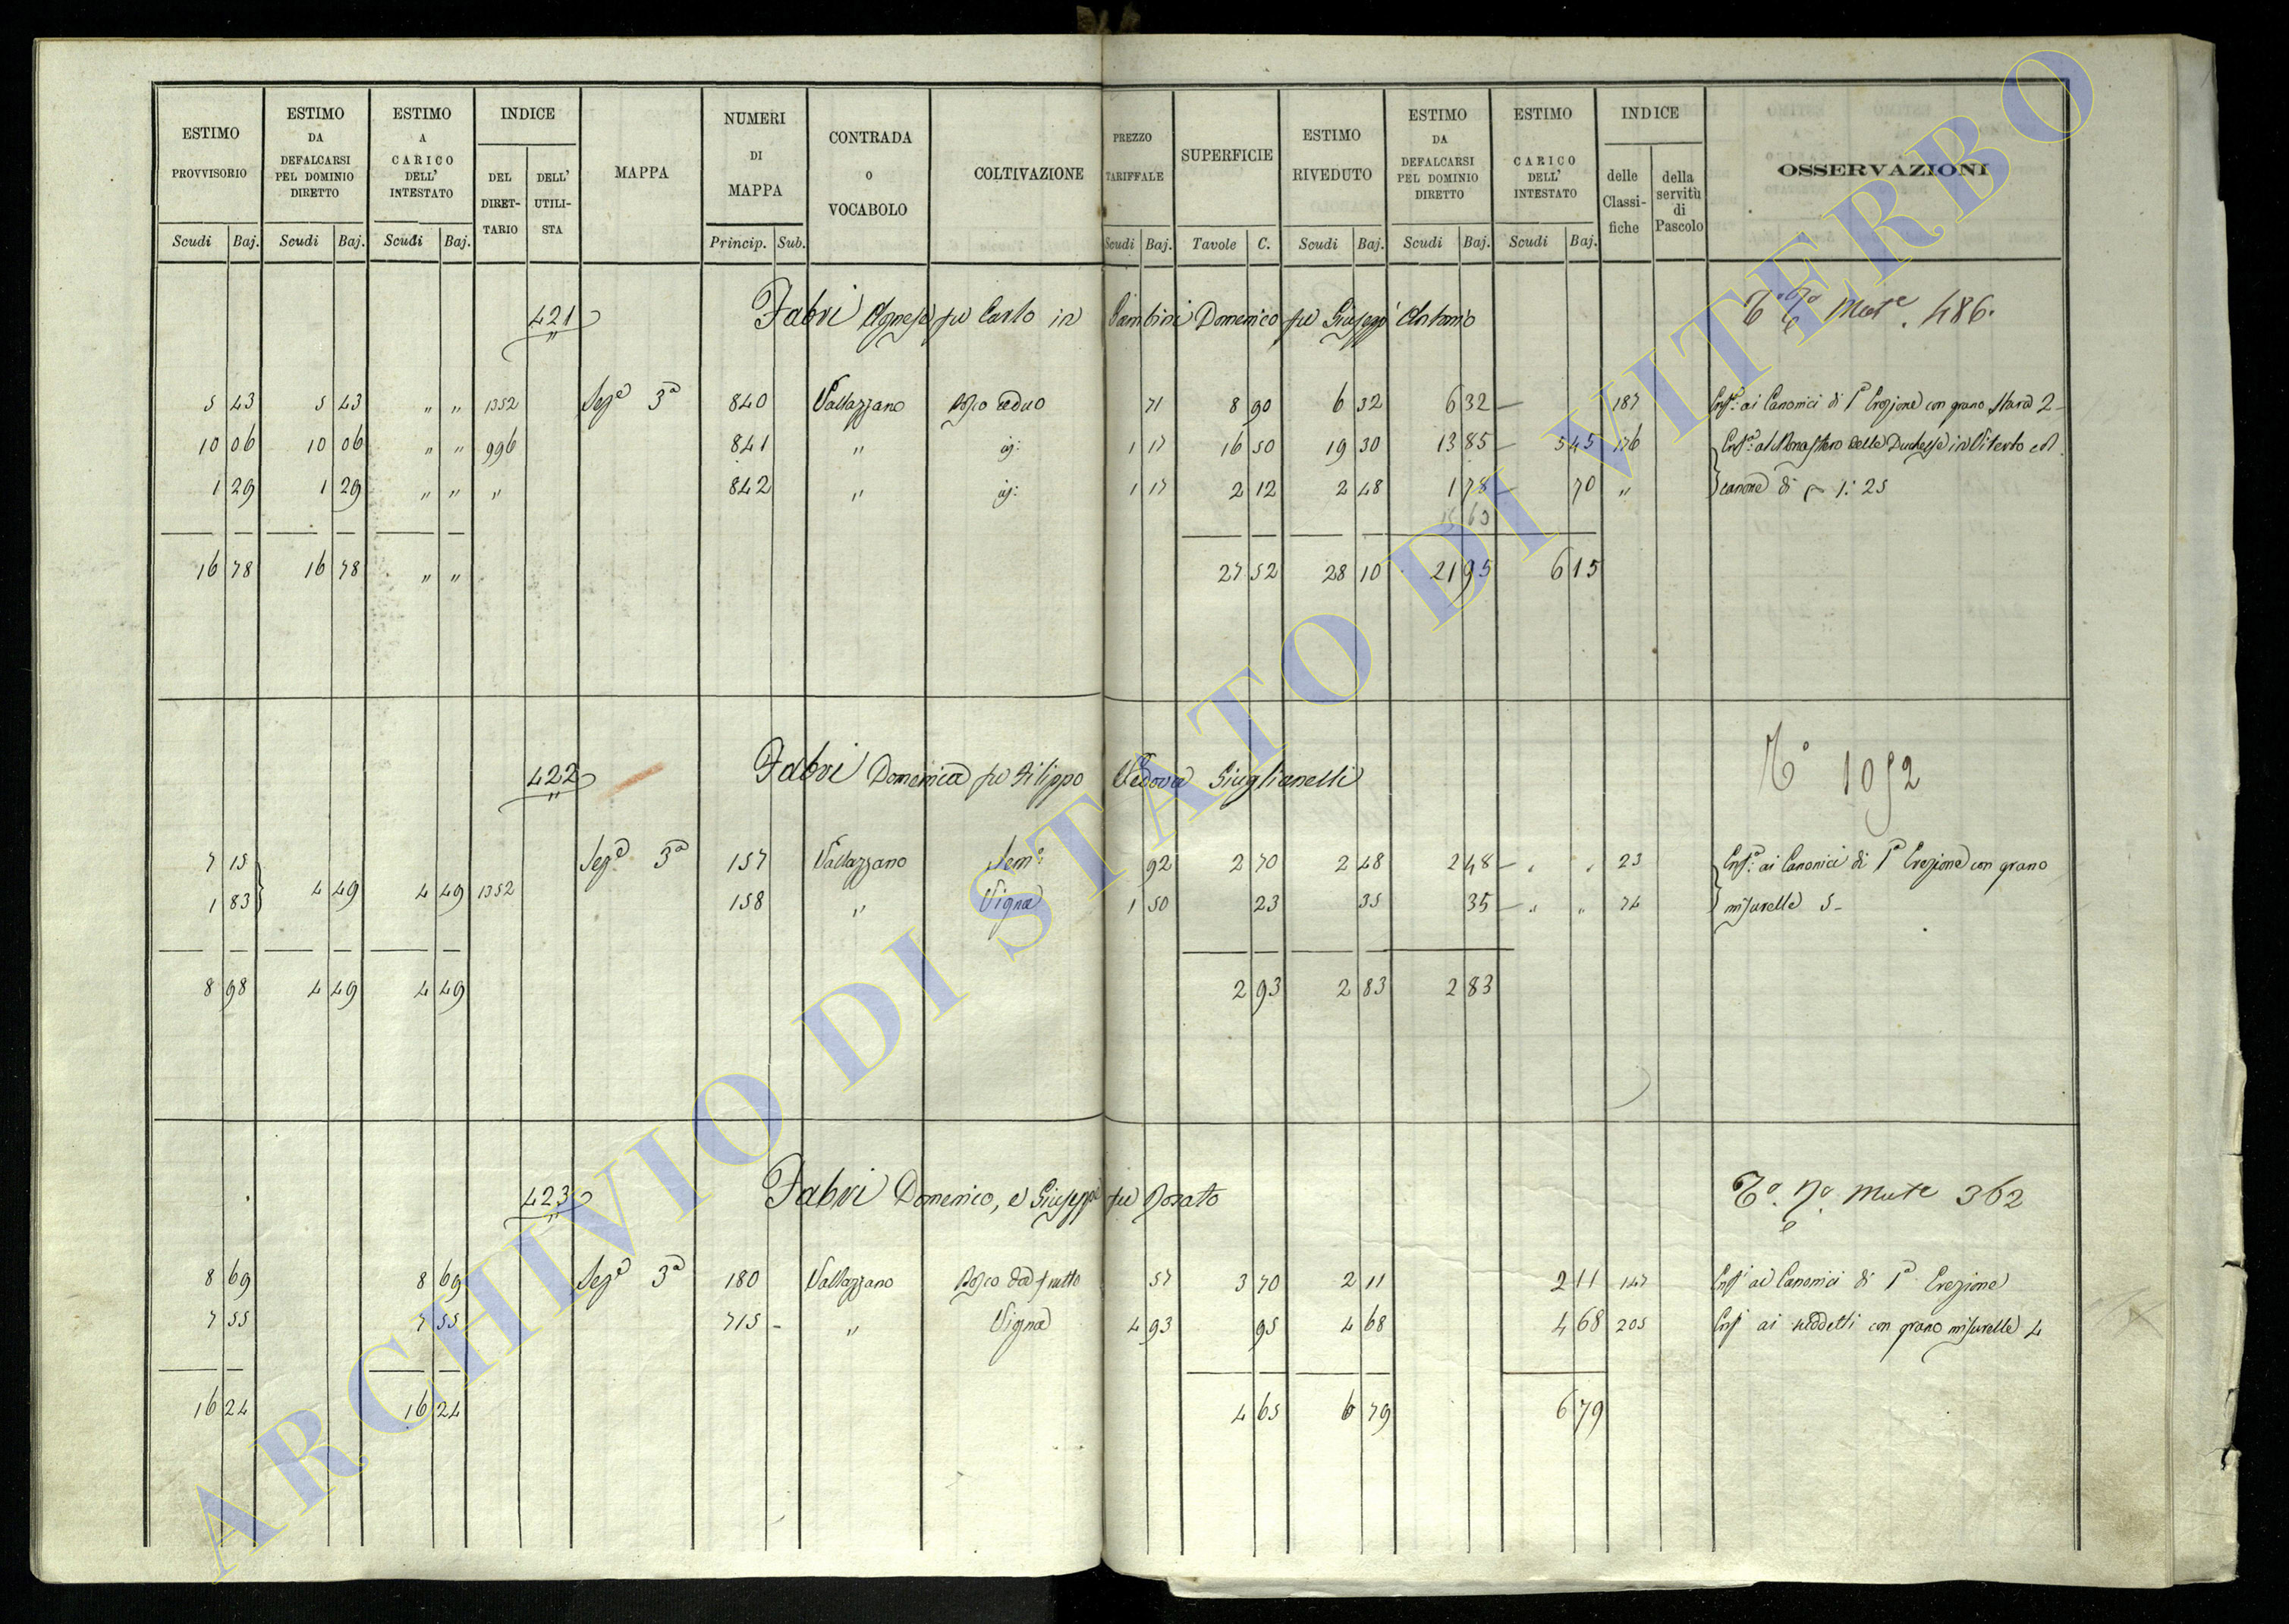 ESTIMO PROVVISORIO Scudi Baj. ESTIMO DA DEFALCARSI PEL DOMINIO DIRETTO Scudi Baj. ESTIMO A CARICO DELL' INTESTATO Scudi Baj. INDICE DEL DIRET-TARIO DELL' UTILI-STA MAPPA NUMERI DI MAPPA Princip. Sub. CONTRADA O VOCABOLO COLTIVAZIONE PREZZO TARIFFALE Scudi Baj. SUPERFICIE Tavole C. ESTIMO RIVEDUTO Scudi Baj. ESTIMO DA DEFALCARSI PEL DOMINIO DIRETTO Scudi Baj. ESTIMO A CARICO DELL' INTESTATO Scudi Baj. INDICE delle Classi-fiche della servitù di Pascolo OSSERVAZIONI
421 Fabri Agnese fu Carlo in Bambini Domenico fu Giuseppe Antonio Mut.e 486.
5 43 5 43 " " 1352 Sez.e 3a 840 Vallazzano Bosco ceduo 71 8 90 6 32 6 32 — 187 Enf.a ai Canonici di 1a Erezione con grano Stara 2 -
10 06 10 06 " " 996 841 " 1 17 16 50 19 30 13 85 — 5 45 176 Enf.a al Monastero delle Duchesse in Viterbo col
1 29 1 29 " " " 842 " 1 17 2 12 2 48 1 78 — 70 " canone di 1: 25
15 63
16 78 16 78 " " 27 52 28 10 21 95 6 15
422 Fabri Domenica fu Filippo Vedova Giuglianelli To 1052
7 15 Sez.e 3a 157 Vallazzano Sem.o 92 2 70 2 48 2 48 — " " 23 Enf.a ai Canonici di 1a Erezione con grano
1 83 4 49 4 49 1352 158 " Vigna 1 50 23 35 35 — " " 74 misurelle 5 -
8 98 4 49 4 49 2 93 2 83 2 83
423 Fabri Domenico, e Giuseppe fu Donato Mut.e 362
8 69 8 69 Sez.e 3a 180 Vallazzano Bosco da frutto 57 3 70 2 11 2 11 147 Enf. ai Canonici di 1a Erezione
7 55 7 55 715 - " Vigna 4 93 95 4 68 4 68 205 Enf. ai suddetti con grano misurelle 4
16 24 16 24 4 65 6 79 6 79
ARCHIVIO DI STATO DI VITERBO